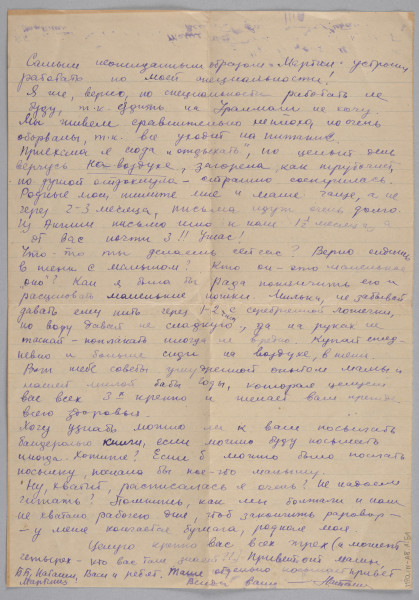 Самым неожиданным образом
работать по моей специальности!
Я же, верно, по специальности работать не
буду, т-к ездить на Уралмаш не хочу.
Мы живем сравнительно неплохо, но очень
оборваны, т-к все уходит на питание.
Приехала я сюда "отдыхать", по целым дням
верчусь на воздухе, загорела, как
но рукой страшно соскучилась.
Родные мои, пишите мне и маме чаще, а не
через 2-3 месяца, письма идут очень долго.
Из Англии письмо шло к нам 1½ месяца, а
от вас почти 3!! Ужас!
Что-то ты делаешь сейчас? Верно сидишь
в тени с малышом? Кто он - это маленькое
"оно"? Как я была бы рада понянчить его и
расцеловать маленькие ножки. Милька, не забывай
давать ему пить через 1-2 ч. с серебряной ложечки,
но воду давай не сладкую, да на руках не
таскай - поплакать иногда не вредно. Купай ежед-
невно и больше сиди на воздухе, в тени.
Вот тебе советы умудренной опытом мамы и
нашей милой бабы Воды, которая целует
вас всех 3х крепко и желает вам прежде
всего здоровья.
Хочу узнать можно ли к вам посылать
бандеролью книги, если можно буду посылать
иногда. Хотите? Если б можно было послать
посылку, послала бы кое-что малышу.
Ну, хватит, расписалась я очень? Не надоело
читать? Помнишь, как мы болтали и нам
не хватало рабочего дня, чтоб закончить разговор -
- у меня кончается бумага, родная моя.
Целую крепко вас всех трех (а может
четырех - кто вас там знает?!!) Привет от мамы,
Наташи, Васи и ребят. Также отдельно привет
Ваша